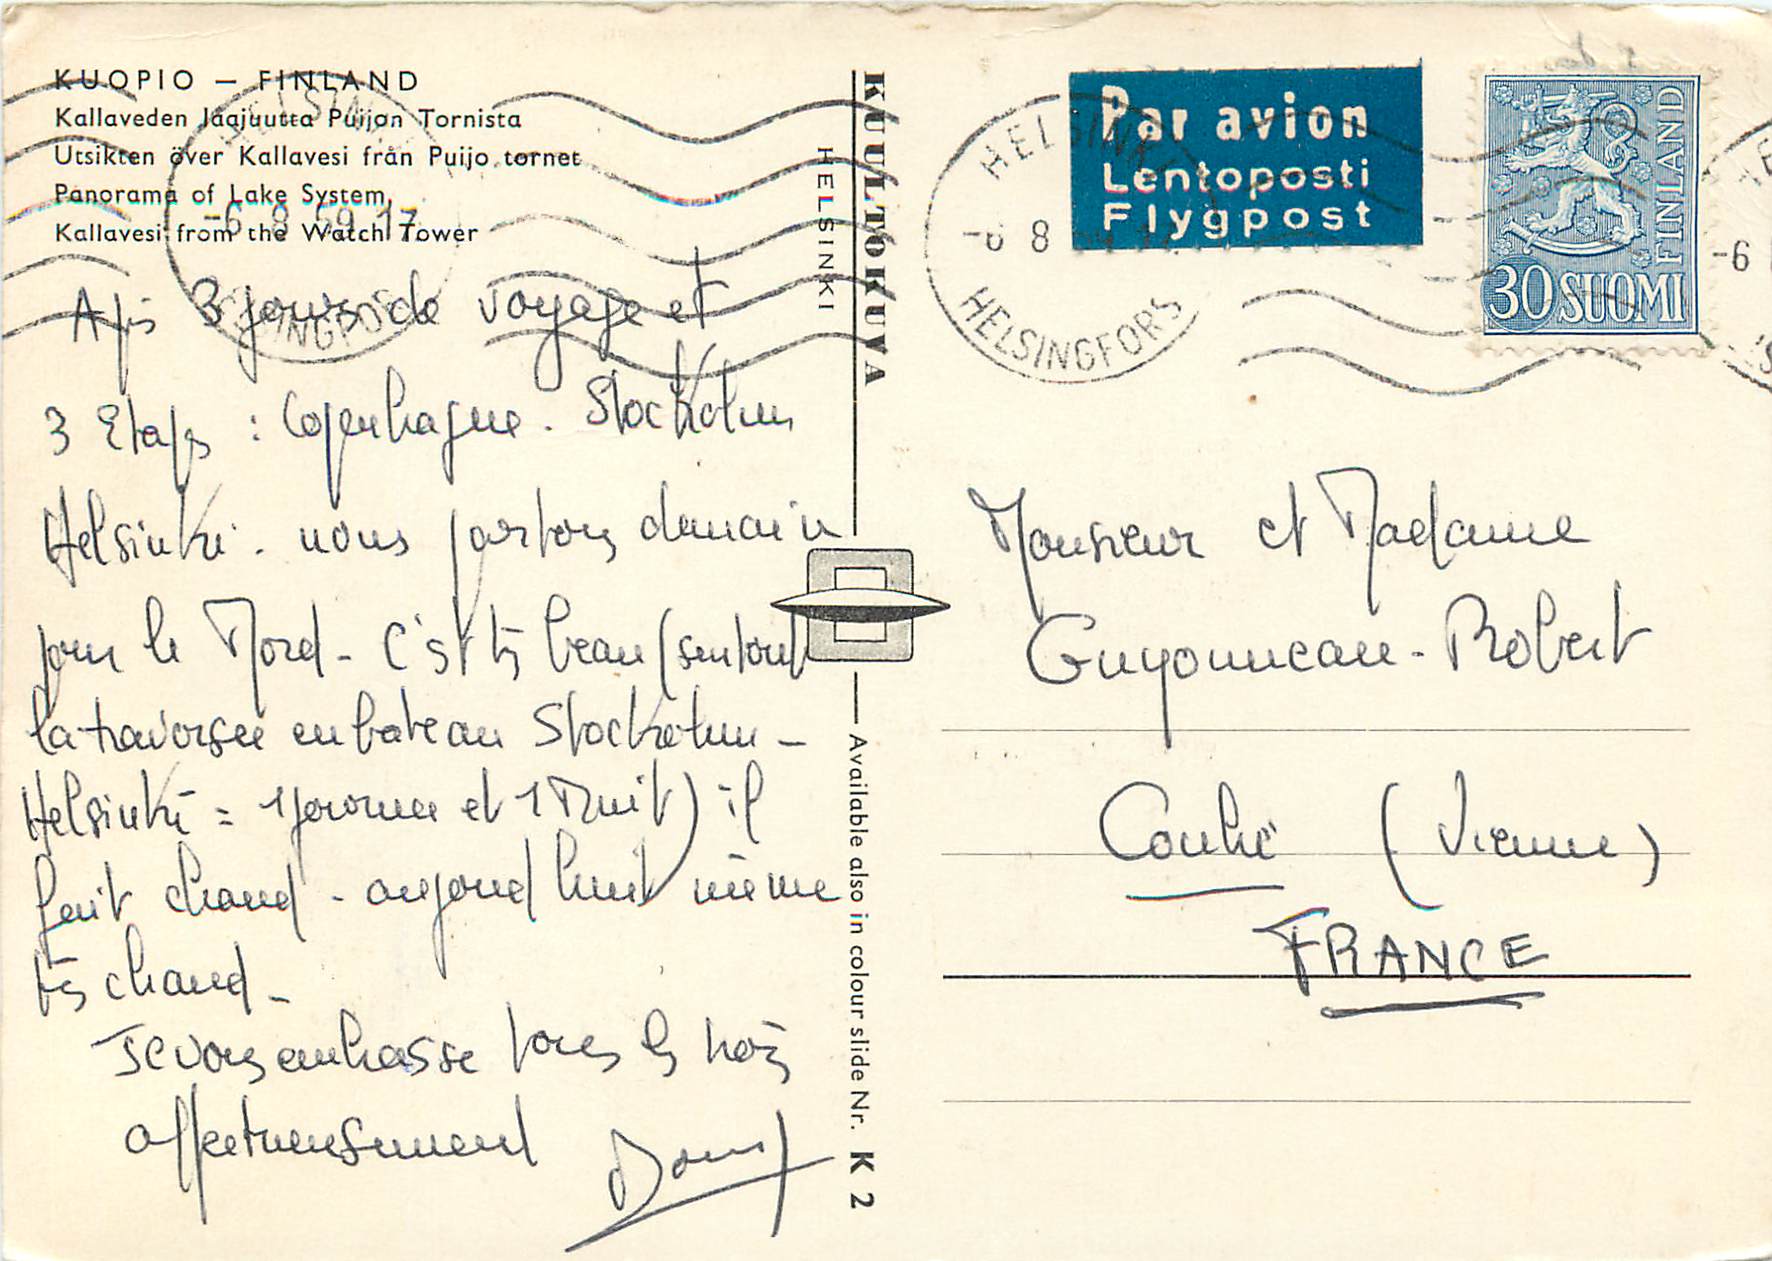 KUOPIO — FINLAND
Kallaveden laajuutta Puijon Tornista
Utsikten över Kallavesi från Puijo tornet
Panorama of Lake System,
Kallavesi from the Watch Tower
HELSINKI
-6.8.59.17
HELSINGFORS
Après 3 jours de voyage et
3 Etapes : Copenhague. Stockholm
Helsinki. nous partons demain
pour le Nord - C'est très beau (surtout
la traversée en bateau Stockholm -
Helsinki = 1 journée et 1 Nuit) il
fait chaud - aujourd'hui même
très chaud -
Je vous embrasse tous les trois
affectueusement
KUULTOKUVA
HELSINKI
Available also in colour slide Nr. K 2
Par avion
Lentoposti
Flygpost
HELSINKI
8
HELSINGFORS
FINLAND
30 SUOMI
-6
Monsieur et Madame
Guyonneau-Robert
Couhé (Vienne)
FRANCE